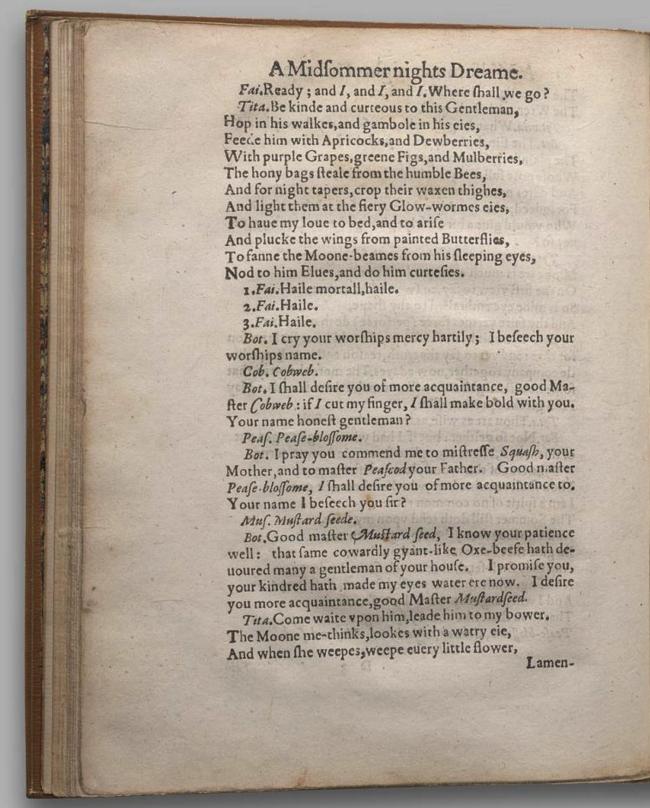 A Midſommer nights Dreame.
Fai. Ready; and I, and I, and I. Where ſhall we go?
Tita. Be kinde and curteous to this Gentleman,
Hop in his walkes, and gambole in his eies,
Feede him with Apricocks, and Dewberries,
With purple Grapes, greene Figs, and Mulberries,
The hony bags ſteale from the humble Bees,
And for night tapers, crop their waxen thighes,
And light them at the fiery Glow-wormes eies,
To haue my loue to bed, and to ariſe
And plucke the wings from painted Butterflies,
To fanne the Moone-beames from his ſleeping eyes,
Nod to him Elues, and do him curteſies.
1. Fai. Haile mortall, haile.
2. Fai. Haile.
3. Fai. Haile.
Bot. I cry your worſhips mercy hartily; I beſeech your
worſhips name.
Cob. Cobweb.
Bot. I ſhall deſire you of more acquaintance, good Ma-
ſter Cobweb: if I cut my finger, I ſhall make bold with you.
Your name honeſt gentleman?
Peaſ. Peaſe-bloſſome.
Bot. I pray you commend me to miſtreſſe Squaſh, your
Mother, and to maſter Peaſcod your Father. Good maſter
Peaſe-bloſſome, I ſhall deſire you of more acquaintance to.
Your name I beſeech you ſir?
Muſ. Muſtard ſeede.
Bot. Good maſter Muſtard ſeed, I know your patience
well: that ſame cowardly gyant-like Oxe-beefe hath de-
uoured many a gentleman of your houſe. I promiſe you,
your kindred hath made my eyes water ere now. I deſire
you more acquaintance, good Maſter Muſtardſeed.
Tita. Come waite vpon him, leade him to my bower.
The Moone me-thinks, lookes with a watry eie,
And when ſhe weepes, weepe euery little flower,
Lamen-